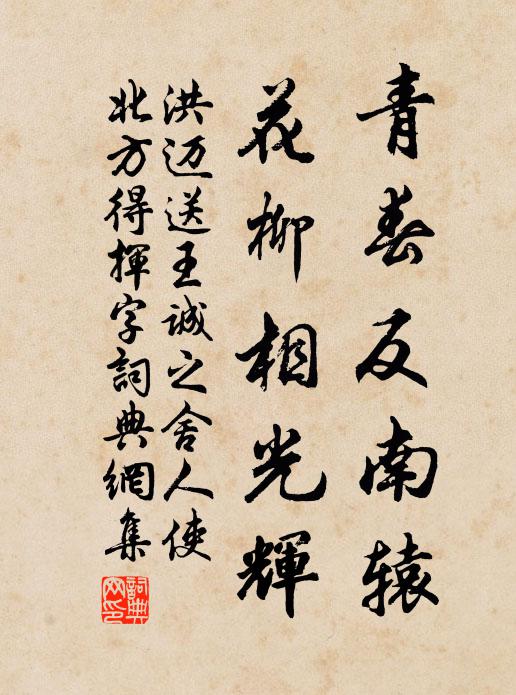 青春反南辕
花柳相光輝
洪迈送王诚之舍人使
北方得揮字詞典網集
詞典網印